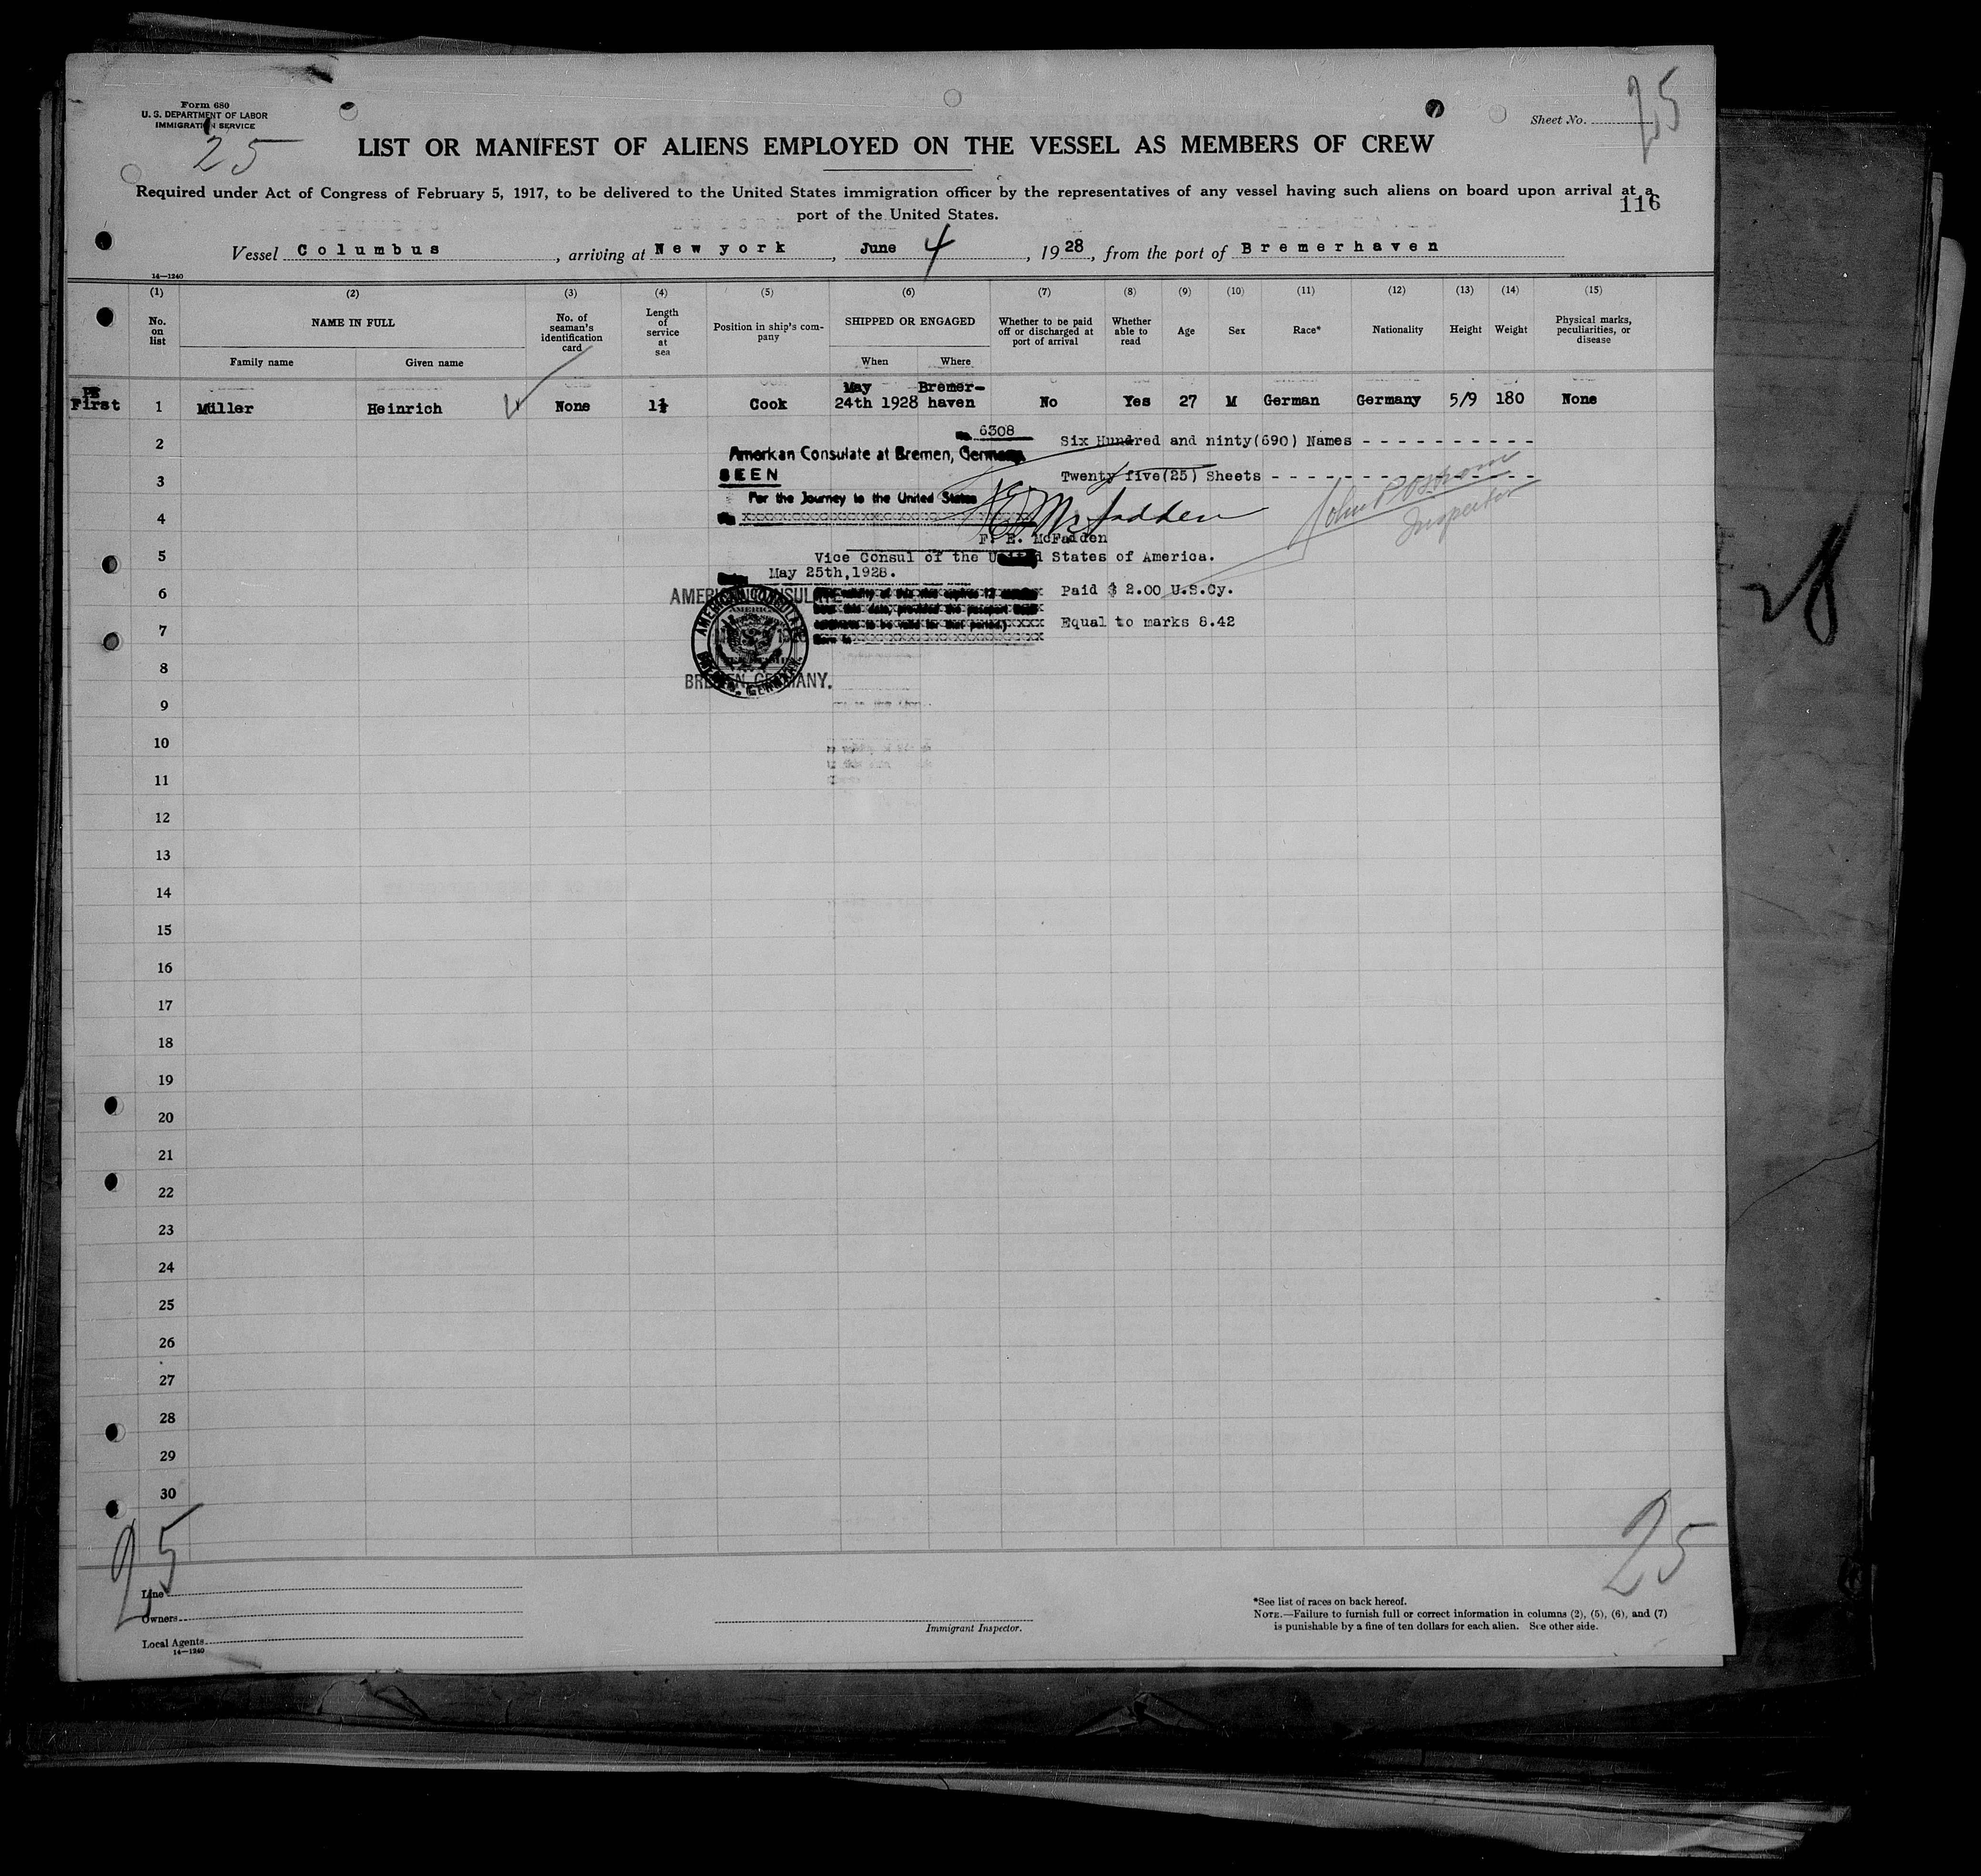 Form 680
U. S. DEPARTMENT OF LABOR
IMMIGRATION SERVICE
25
Sheet No. 25
LIST OR MANIFEST OF ALIENS EMPLOYED ON THE VESSEL AS MEMBERS OF CREW
Required under Act of Congress of February 5, 1917, to be delivered to the United States immigration officer by the representatives of any vessel having such aliens on board upon arrival at a
port of the United States.
116
Vessel Columbus, arriving at New york, June 4, 1928, from the port of Bremerhaven
14—1240
(1) (2) (3) (4) (5) (6) (7) (8) (9) (10) (11) (12) (13) (14) (15)
No. on list
NAME IN FULL
Family name Given name
No. of seaman's identification card
Length of service at sea
Position in ship's company
SHIPPED OR ENGAGED
When Where
Whether to be paid off or discharged at port of arrival
Whether able to read
Age
Sex
Race*
Nationality
Height
Weight
Physical marks, peculiarities, or disease
First 1 Müller Heinrich None Cook May 24th 1928 Bremer-haven No Yes 27 M German Germany 5/9 180 None
2
6308
Six Hundred and ninty(690) Names - - - - - - - - - -
American Consulate at Bremen, Germany
3
SEEN
Twenty five(25) Sheets - - - - - - - - - - - - - -
For the Journey to the United States
4
F. E. McFadden
Inspector
5
Vice Consul of the United States of America.
May 25th,1928.
6
AMERICAN CONSULATE
Paid $ 2.00 U.S.Cy.
7
Equal to marks 8.42
8
BREMEN, GERMANY.
9
10
11
12
13
14
15
16
17
18
19
20
21
22
23
24
25
26
27
28
29
30
25
25
Line
Owners
Local Agents
14—1240
Immigrant Inspector.
*See list of races on back hereof.
NOTE.—Failure to furnish full or correct information in columns (2), (5), (6), and (7)
is punishable by a fine of ten dollars for each alien. See other side.